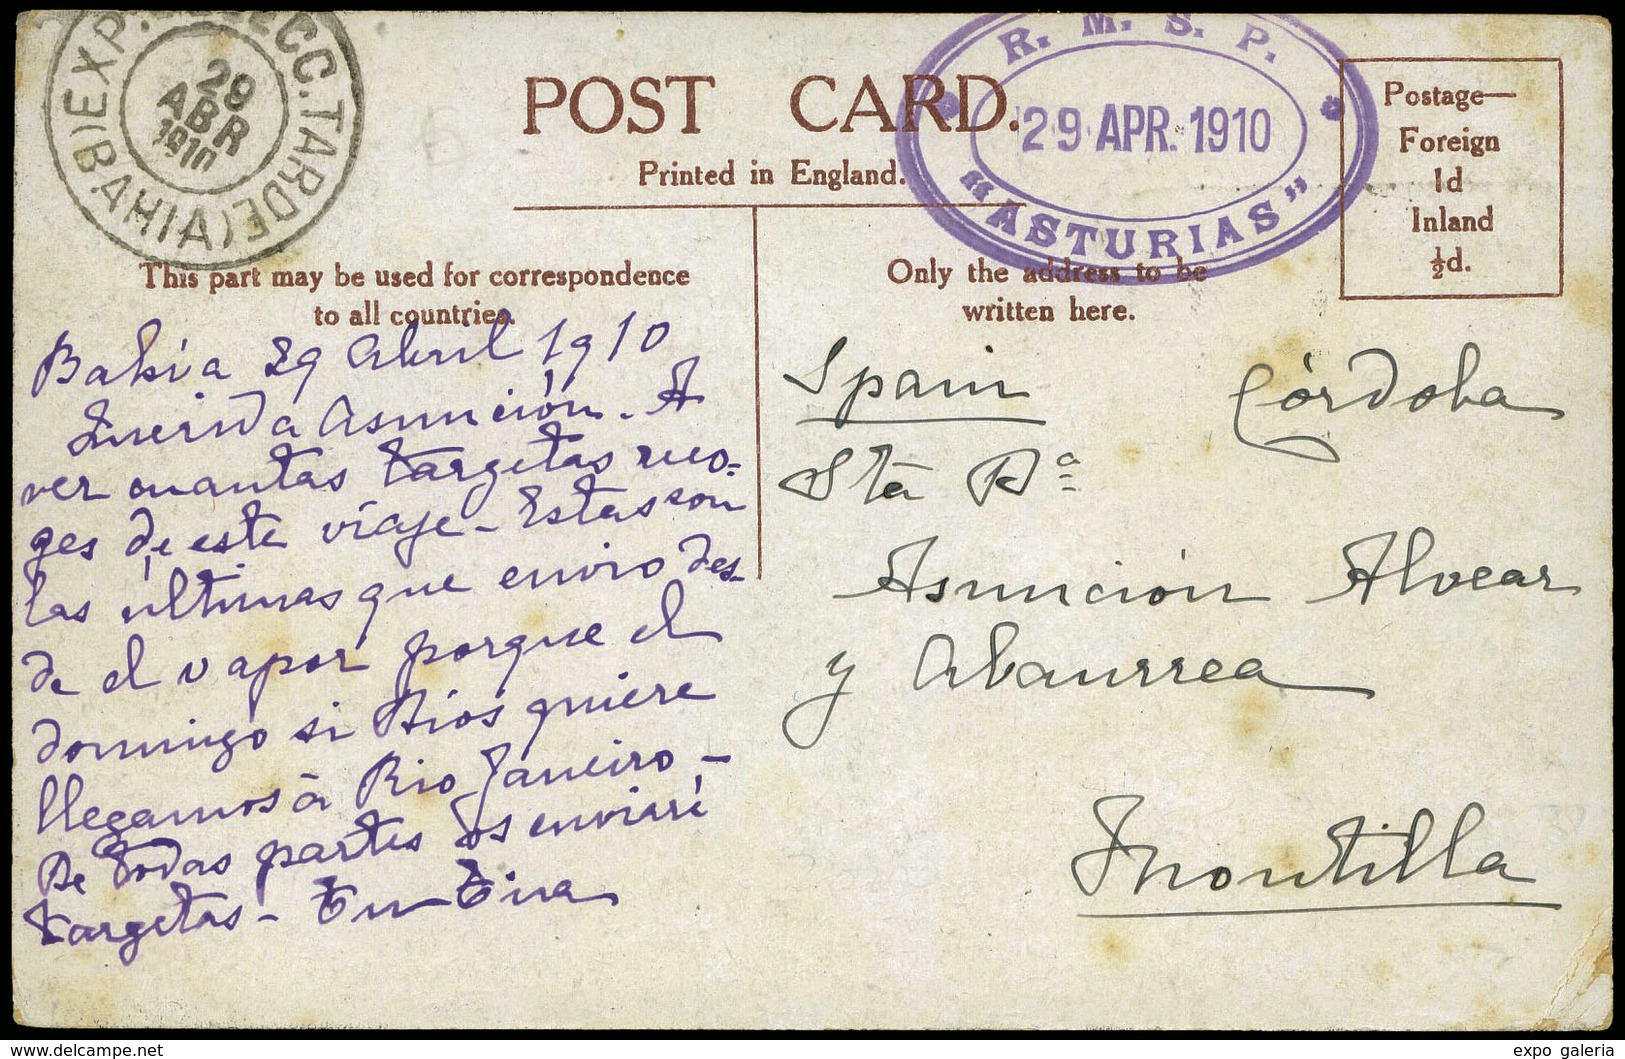 EXP. SECC. TARDE (BAHIA)
29
ABR
1910
R. M. S. P.
29 APR. 1910
"ASTURIAS"
POST CARD.
Printed in England.
Postage—
Foreign
1d
Inland
½d.
This part may be used for correspondence
to all countries.
Only the address to be
written here.
Bahia 29 Abril 1910
Querida Asunción. A
ver cuantas targetas reco=
ges de este viaje - Estas son
las últimas que envio des-
de el vapor porque el
domingo si Dios quiere
llegamos á Rio Janeiro -
De todas partes os enviaré
targetas - Tu
Spain Córdoba
Sta Dª
Asunción Alvear
y Abaurrea
Montilla
expo galeria
www.delcampe.net